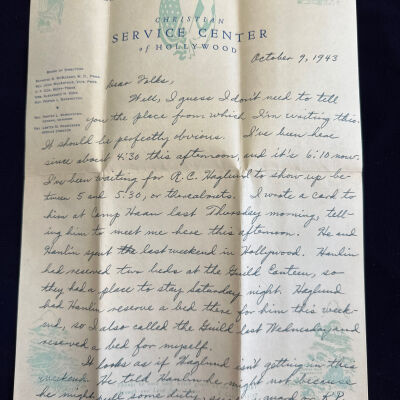 CHRISTIAN
SERVICE CENTER
of HOLLYWOOD
October 9, 1943
BOARD OF DIRECTORS
Dear Folks,
Well, I guess I don't need to tell
you the place from which I'm writing this.
It should be perfectly obvious. I've been here
since about 4:30 this afternoon, and it's 6:10 now.
I've been waiting for R.C. Haglund to show up be-
tween 5 and 5:30, or thereabouts. I wrote a card to
him at Camp Haan last Thursday morning, tell-
ing him to meet me here this afternoon. He and
Hanlin spent the last weekend in Hollywood. Hanlin
had reserved two beds at the Guild Canteen, so
they had a place to stay Saturday night. Haglund
had Hanlin reserve a bed there for him this week-
end, so I also called the Guild last Wednesday and
reserved a bed for myself.
It looks as if Haglund isn't getting in this
weekend. He told Hanlin he might not because
he might pull some duty, guard or K.P.